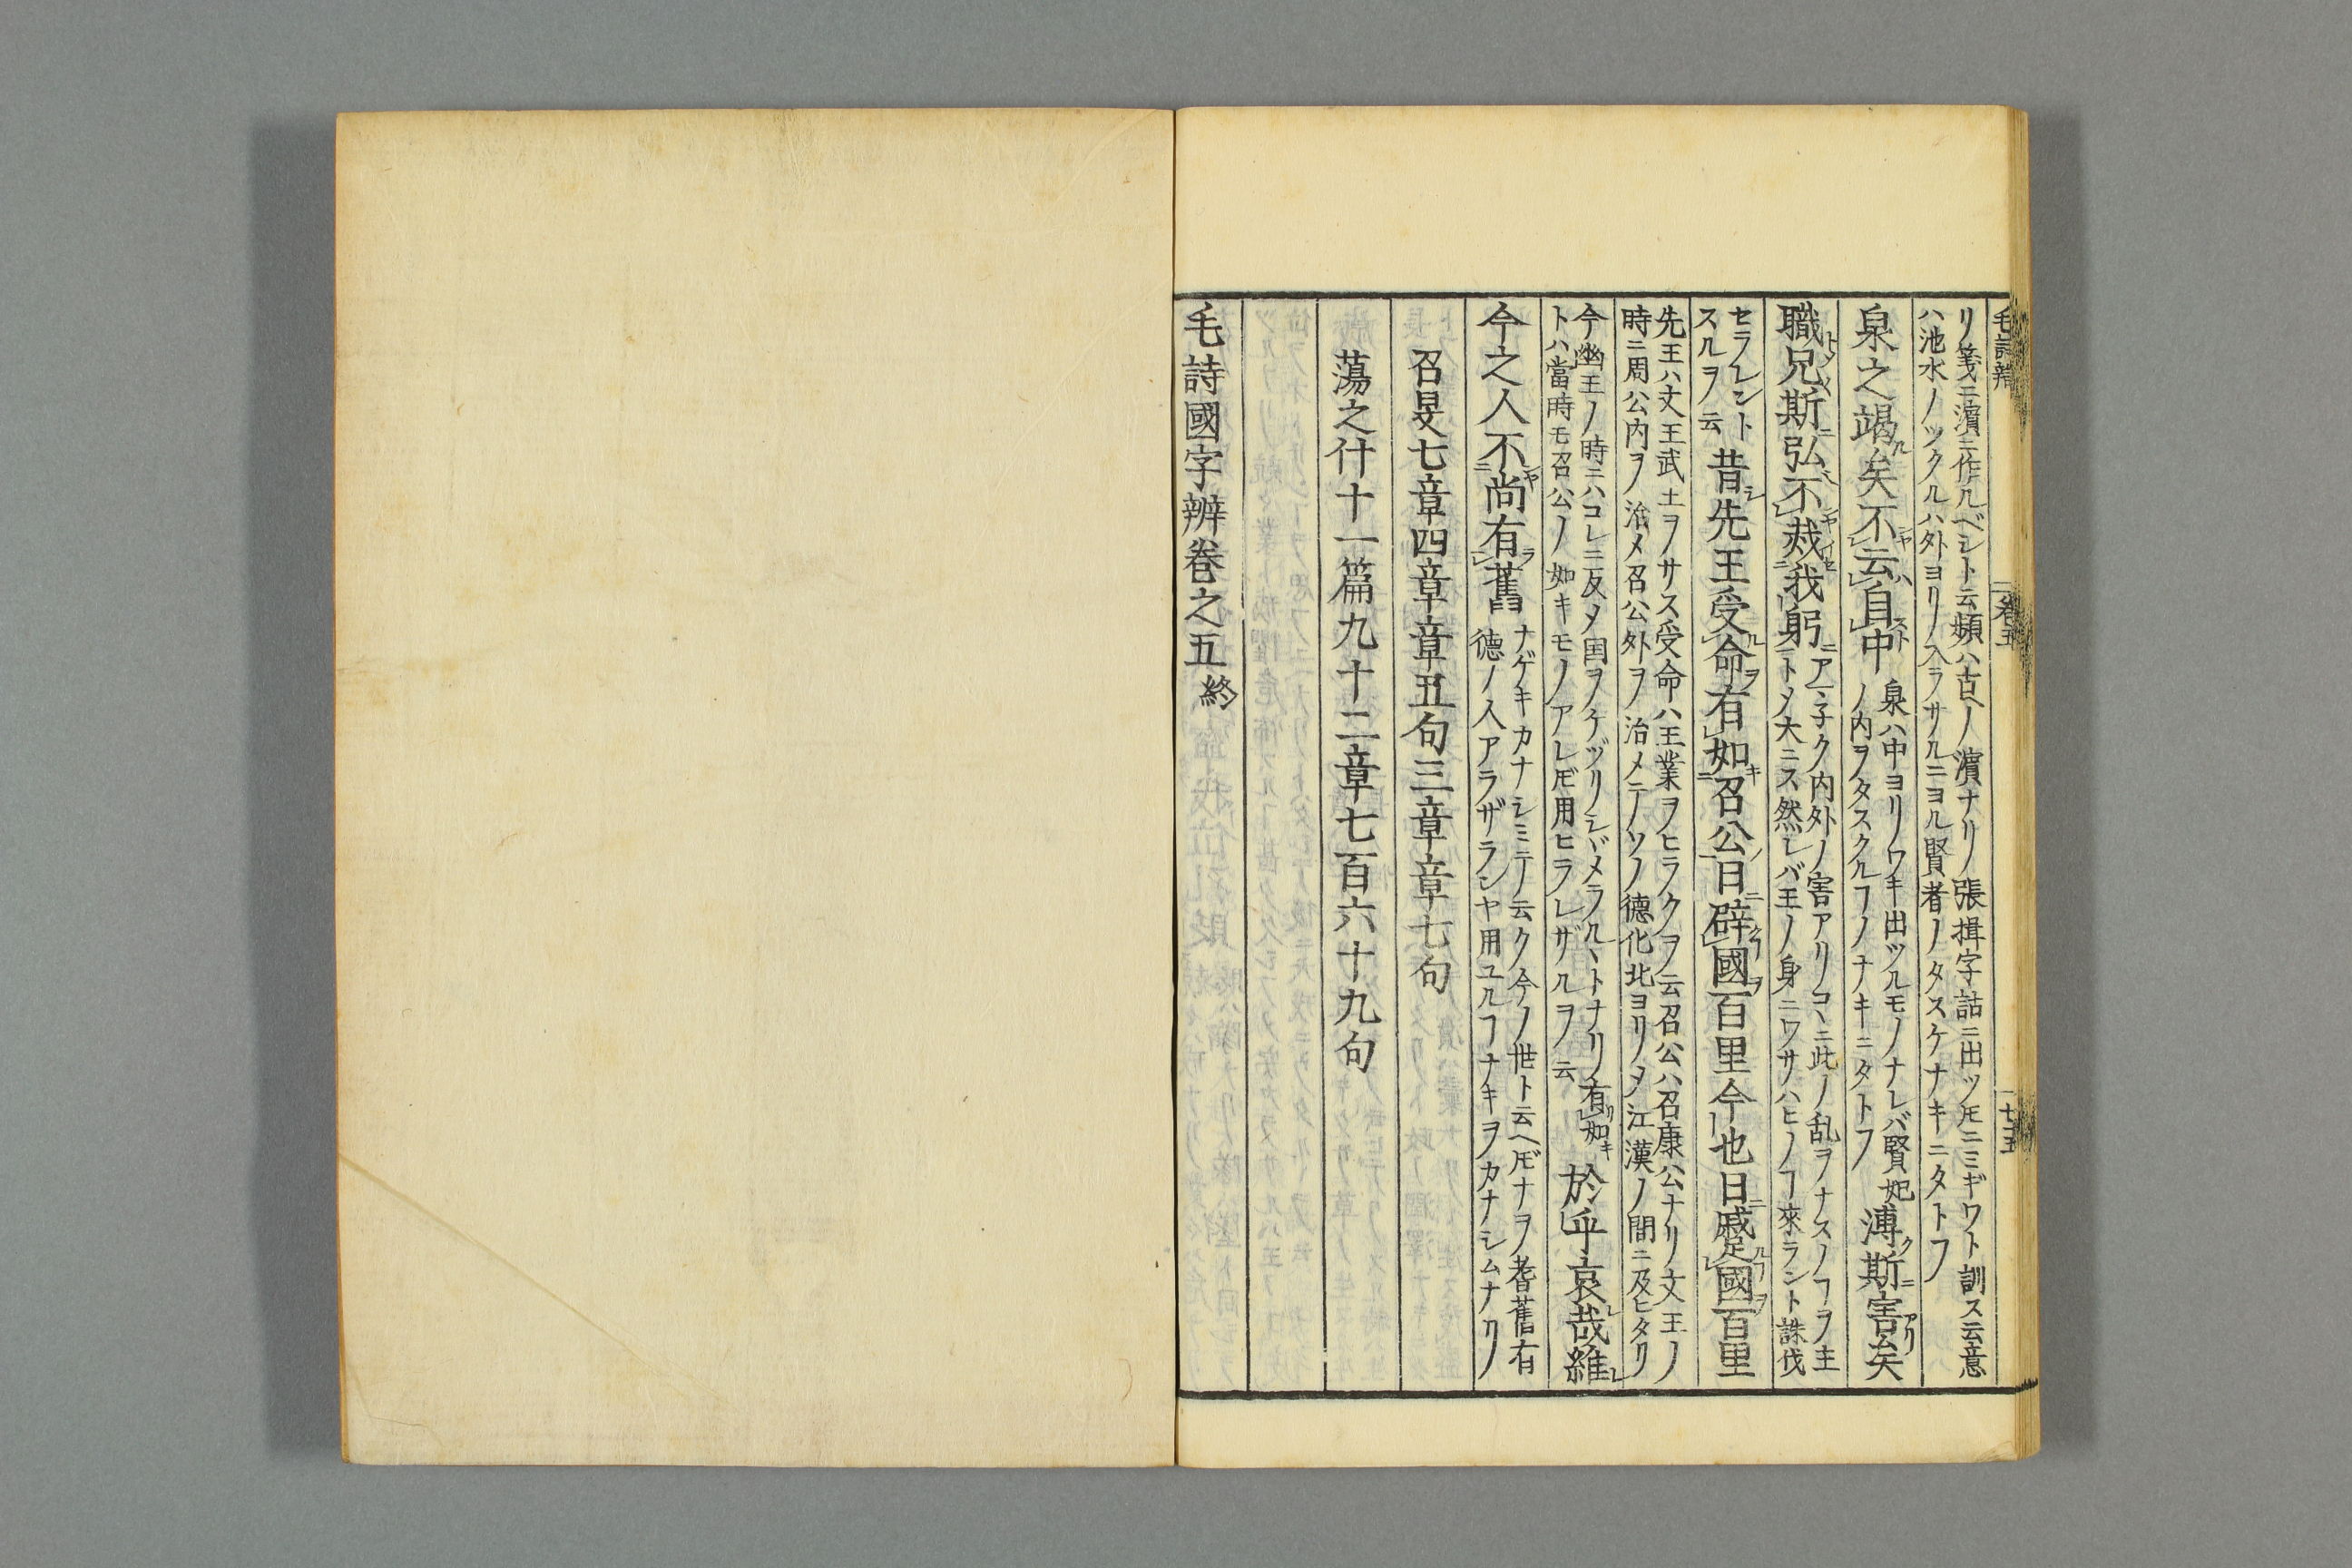 毛詩辨
卷五
七十五
リ箋ニ濵ニ作ルベシト云頻ハ古ヘノ濵ナリ張揖字詁ニ出ツ𪜈ニミギワト訓ス云意
ハ池水ノツクルハ外ヨリノ入ラサルニヨル賢者ノタスケナキニタトフ
泉之竭矣不云自中
泉ハ中ヨリワキ出ツルモノナレバ賢妃
ノ内ヲタスクルヿノナキニタトフ
溥斯害矣
職兄斯弘不烖我躬
アマ子ク内外ノ害アリコヽニ此ノ乱ヲナスノヿヲ主
トメ大ニス然レバ王ノ身ニワサハヒノヿ來ラント誅伐
セラレント
スルヲ云
昔先王受命有如召公日辟國百里今也日蹙國百里
先王ハ文王武王ヲサス受命ハ王業ヲヒラクヲ云召公ハ召康公ナリ文王ノ
時ニ周公内ヲ治メ召公外ヲ治メテソノ德化北ヨリメ江漢ノ間ニ及ヒタリ
今幽王ノ時ニハコレニ反メ国ヲケヅリシヾメラルヽトナリ有如キ
トハ當時モ召公ノ如キモノアレ𪜈用ヒラレザルヲ云
於乎哀哉維
今之人不尚有舊
ナゲキカナシミテ云ク今ノ世ト云ヘ𪜈ナヲ耆舊有
德ノ人アラザランヤ用ユルヿナキヲカナシムナリ
召旻七章四章章五句三章章七句
蕩之什十一篇九十二章七百六十九句
毛詩國字辨卷之五終